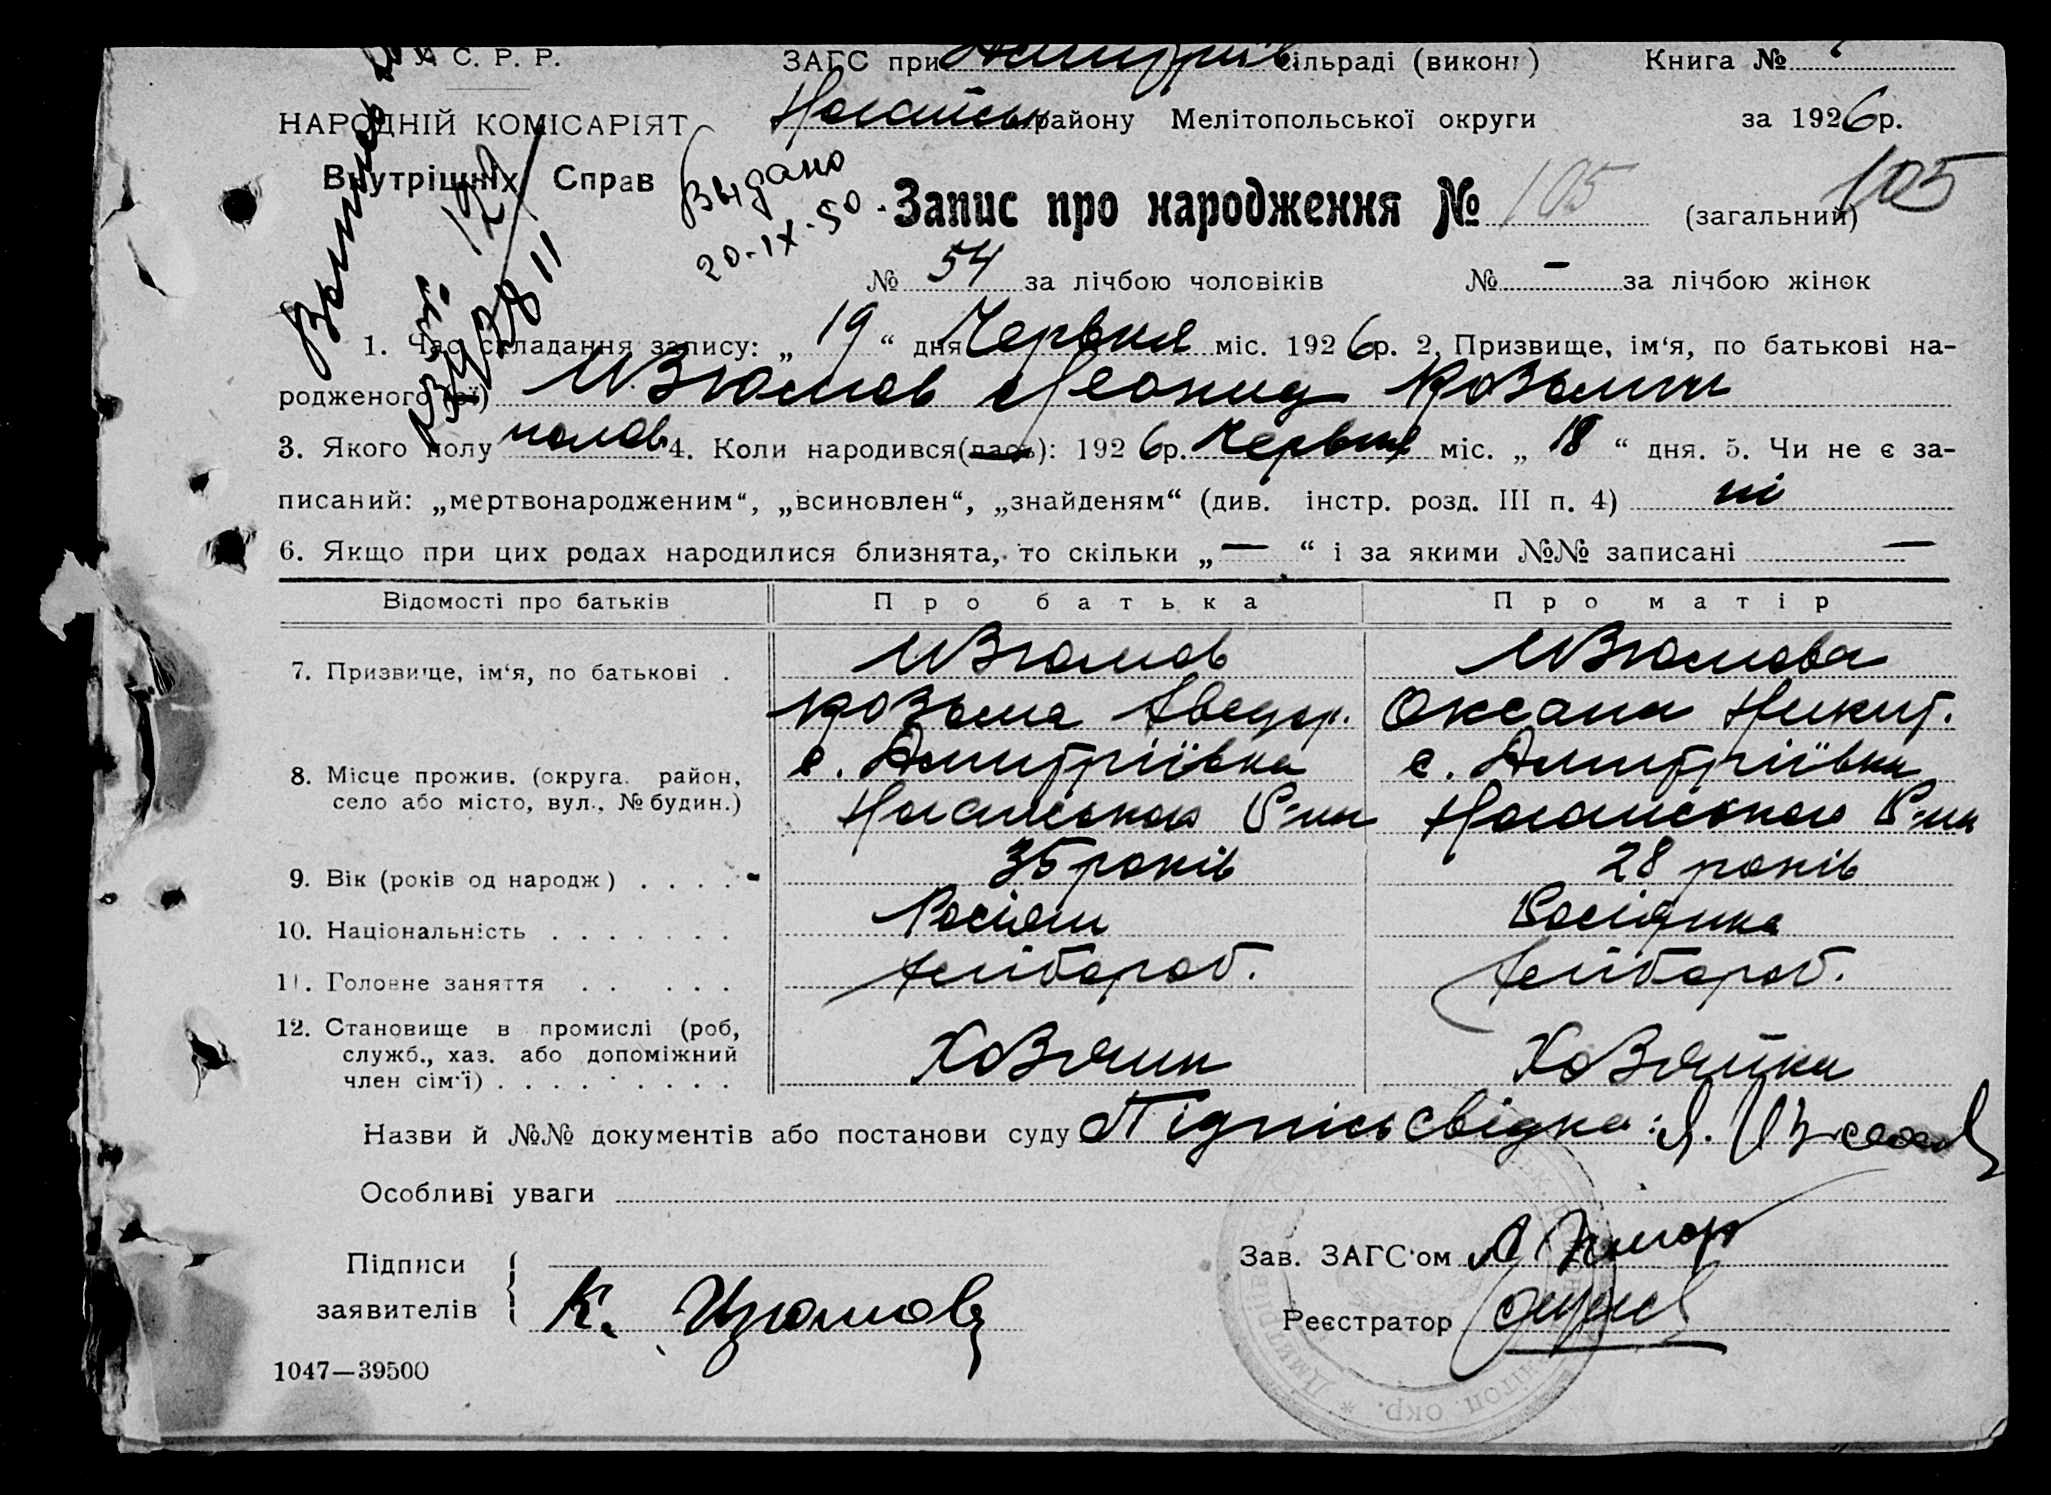 У. С. Р. Р. ЗАГС при Дмитрів. сільраді (виконк) Книга №
НАРОДНІЙ КОМІСАРІЯТ Ногайськ району Мелітопольської округи за 1926 р.
Внутрішніх Справ Выдано
20-IX-50. Запис про народження № 105 (загальний) 105
№ 54 за лічбою чоловіків № — за лічбою жінок
1. Час складання запису: „ 19 “ дня Червня міс. 1926 р. 2. Призвище, ім‘я, по батькові на-
родженого(ої) Изюмов Леонид Козьмич
3. Якого полу чолов. 4. Коли народився(лась): 1926 р. Червня міс. „ 18 “ дня. 5. Чи не є за-
писаний: „мертвонародженим“, „всиновлен“, „знайденям“ (див. інстр. розд. III п. 4) ні
6. Якщо при цих родах народилися близнята, то скільки „ — “ і за якими №№ записані —
Відомості про батьків Про батька Про матір
7. Призвище, ім‘я, по батькові . Изюмов Изюмова
Козьма Оксана Никит.
8. Місце прожив. (округа. район, с. Дмитріївка с. Дмитріївка
село або місто, вул., № будин.) Ногайського Р-ну Ногайського Р-ну
9. Вік (років од народж) . . . . 35 років 28 років
10. Національність . . . . . . . Росіян Росіянка
11. Головне заняття . . . . . хлібороб. хлібороб.
12. Становище в промислі (роб,
служб., хаз. або допоміжний Хозяин Хозяйка
член сім‘ї) . . . . . . . . .
Назви й №№ документів або постанови суду Підпісь свідка:
Особливі уваги
Підписи Зав. ЗАГС‘ом
заявителів К. Изюмовъ Реєстратор
1047—39500